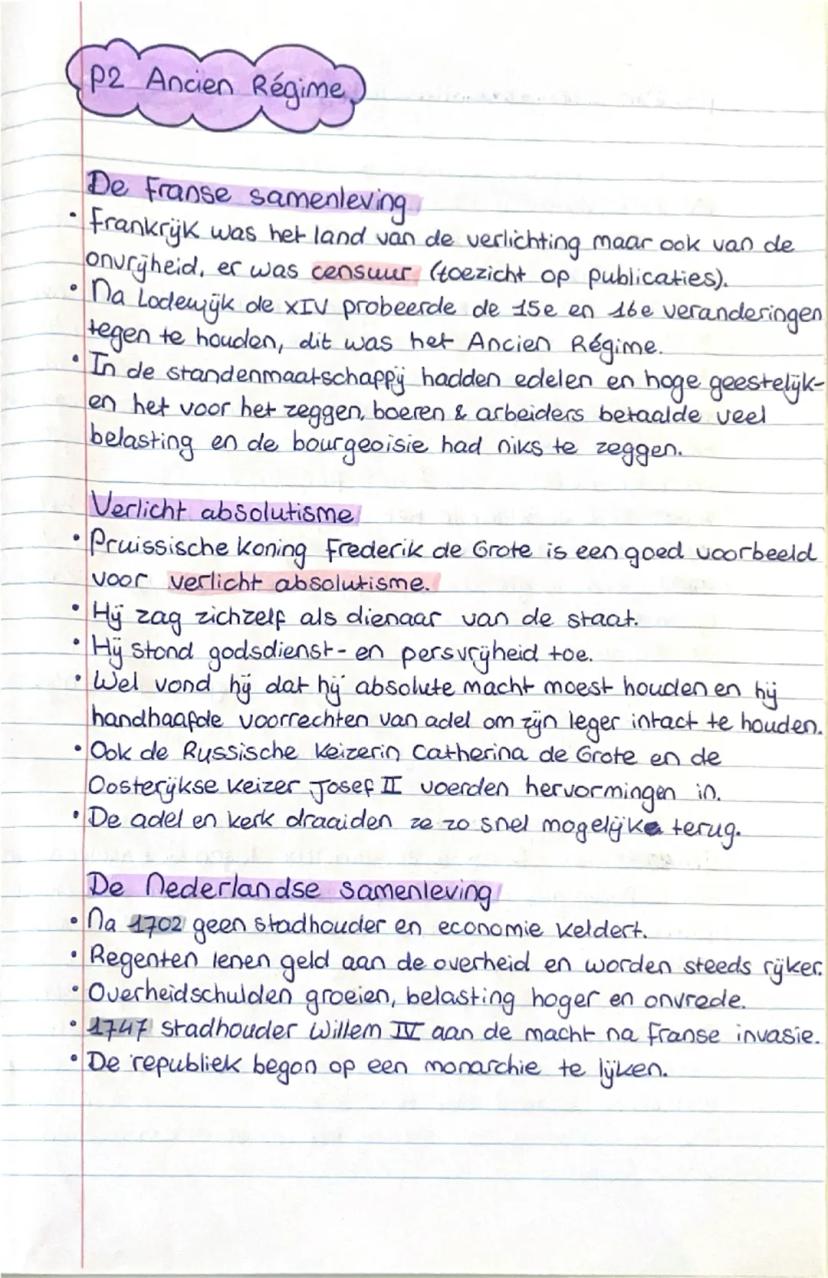 P2 Ancien Régime
De Franse samenleving
• Frankrijk was het land van de verlichting maar ook van de
onvrijheid, er was censuur (toezicht op publicaties).
• Na Lodewijk de XIV probeerde de 15e en 16e veranderingen
tegen te houden, dit was het Ancien Régime.
• In de standenmaatschappij hadden edelen en hoge geestelijk-
en het voor het zeggen, boeren & arbeiders betaalde veel
belasting en de bourgeoisie had niks te zeggen.
Verlicht absolutisme
• Pruissische koning Frederik de Grote is een goed voorbeeld
voor verlicht absolutisme.
• Hij zag zichzelf als dienaar van de staat.
• Hij stond godsdienst- en persvrijheid toe.
• Wel vond hij dat hij absolute macht moest houden en hij
handhaafde voorrechten van adel om zijn leger intact te houden.
• Ook de Russische keizerin Catherina de Grote en de
Oosterijkse keizer Josef II voerden hervormingen in.
• De adel en kerk draaiden ze zo snel mogelijk terug.
De Nederlandse samenleving
• Na 1702 geen stadhouder en economie keldert.
• Regenten lenen geld aan de overheid en worden steeds rijker.
• Overheidschulden groeien, belasting hoger en onvrede.
• 1747 stadhouder Willem IV aan de macht na Franse invasie.
• De republiek begon op een monarchie te lijken.